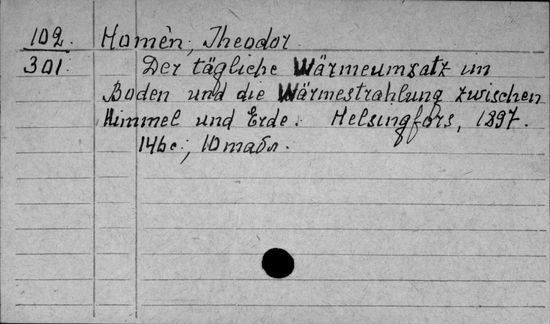 102. Homèn, Theodor.
301. Der tägliche Wärmeumsatz im
Boden und die Wärmestrahlung zwischen
Himmel und Erde. Helsingfors, 1897.
146 с., 10 табл.